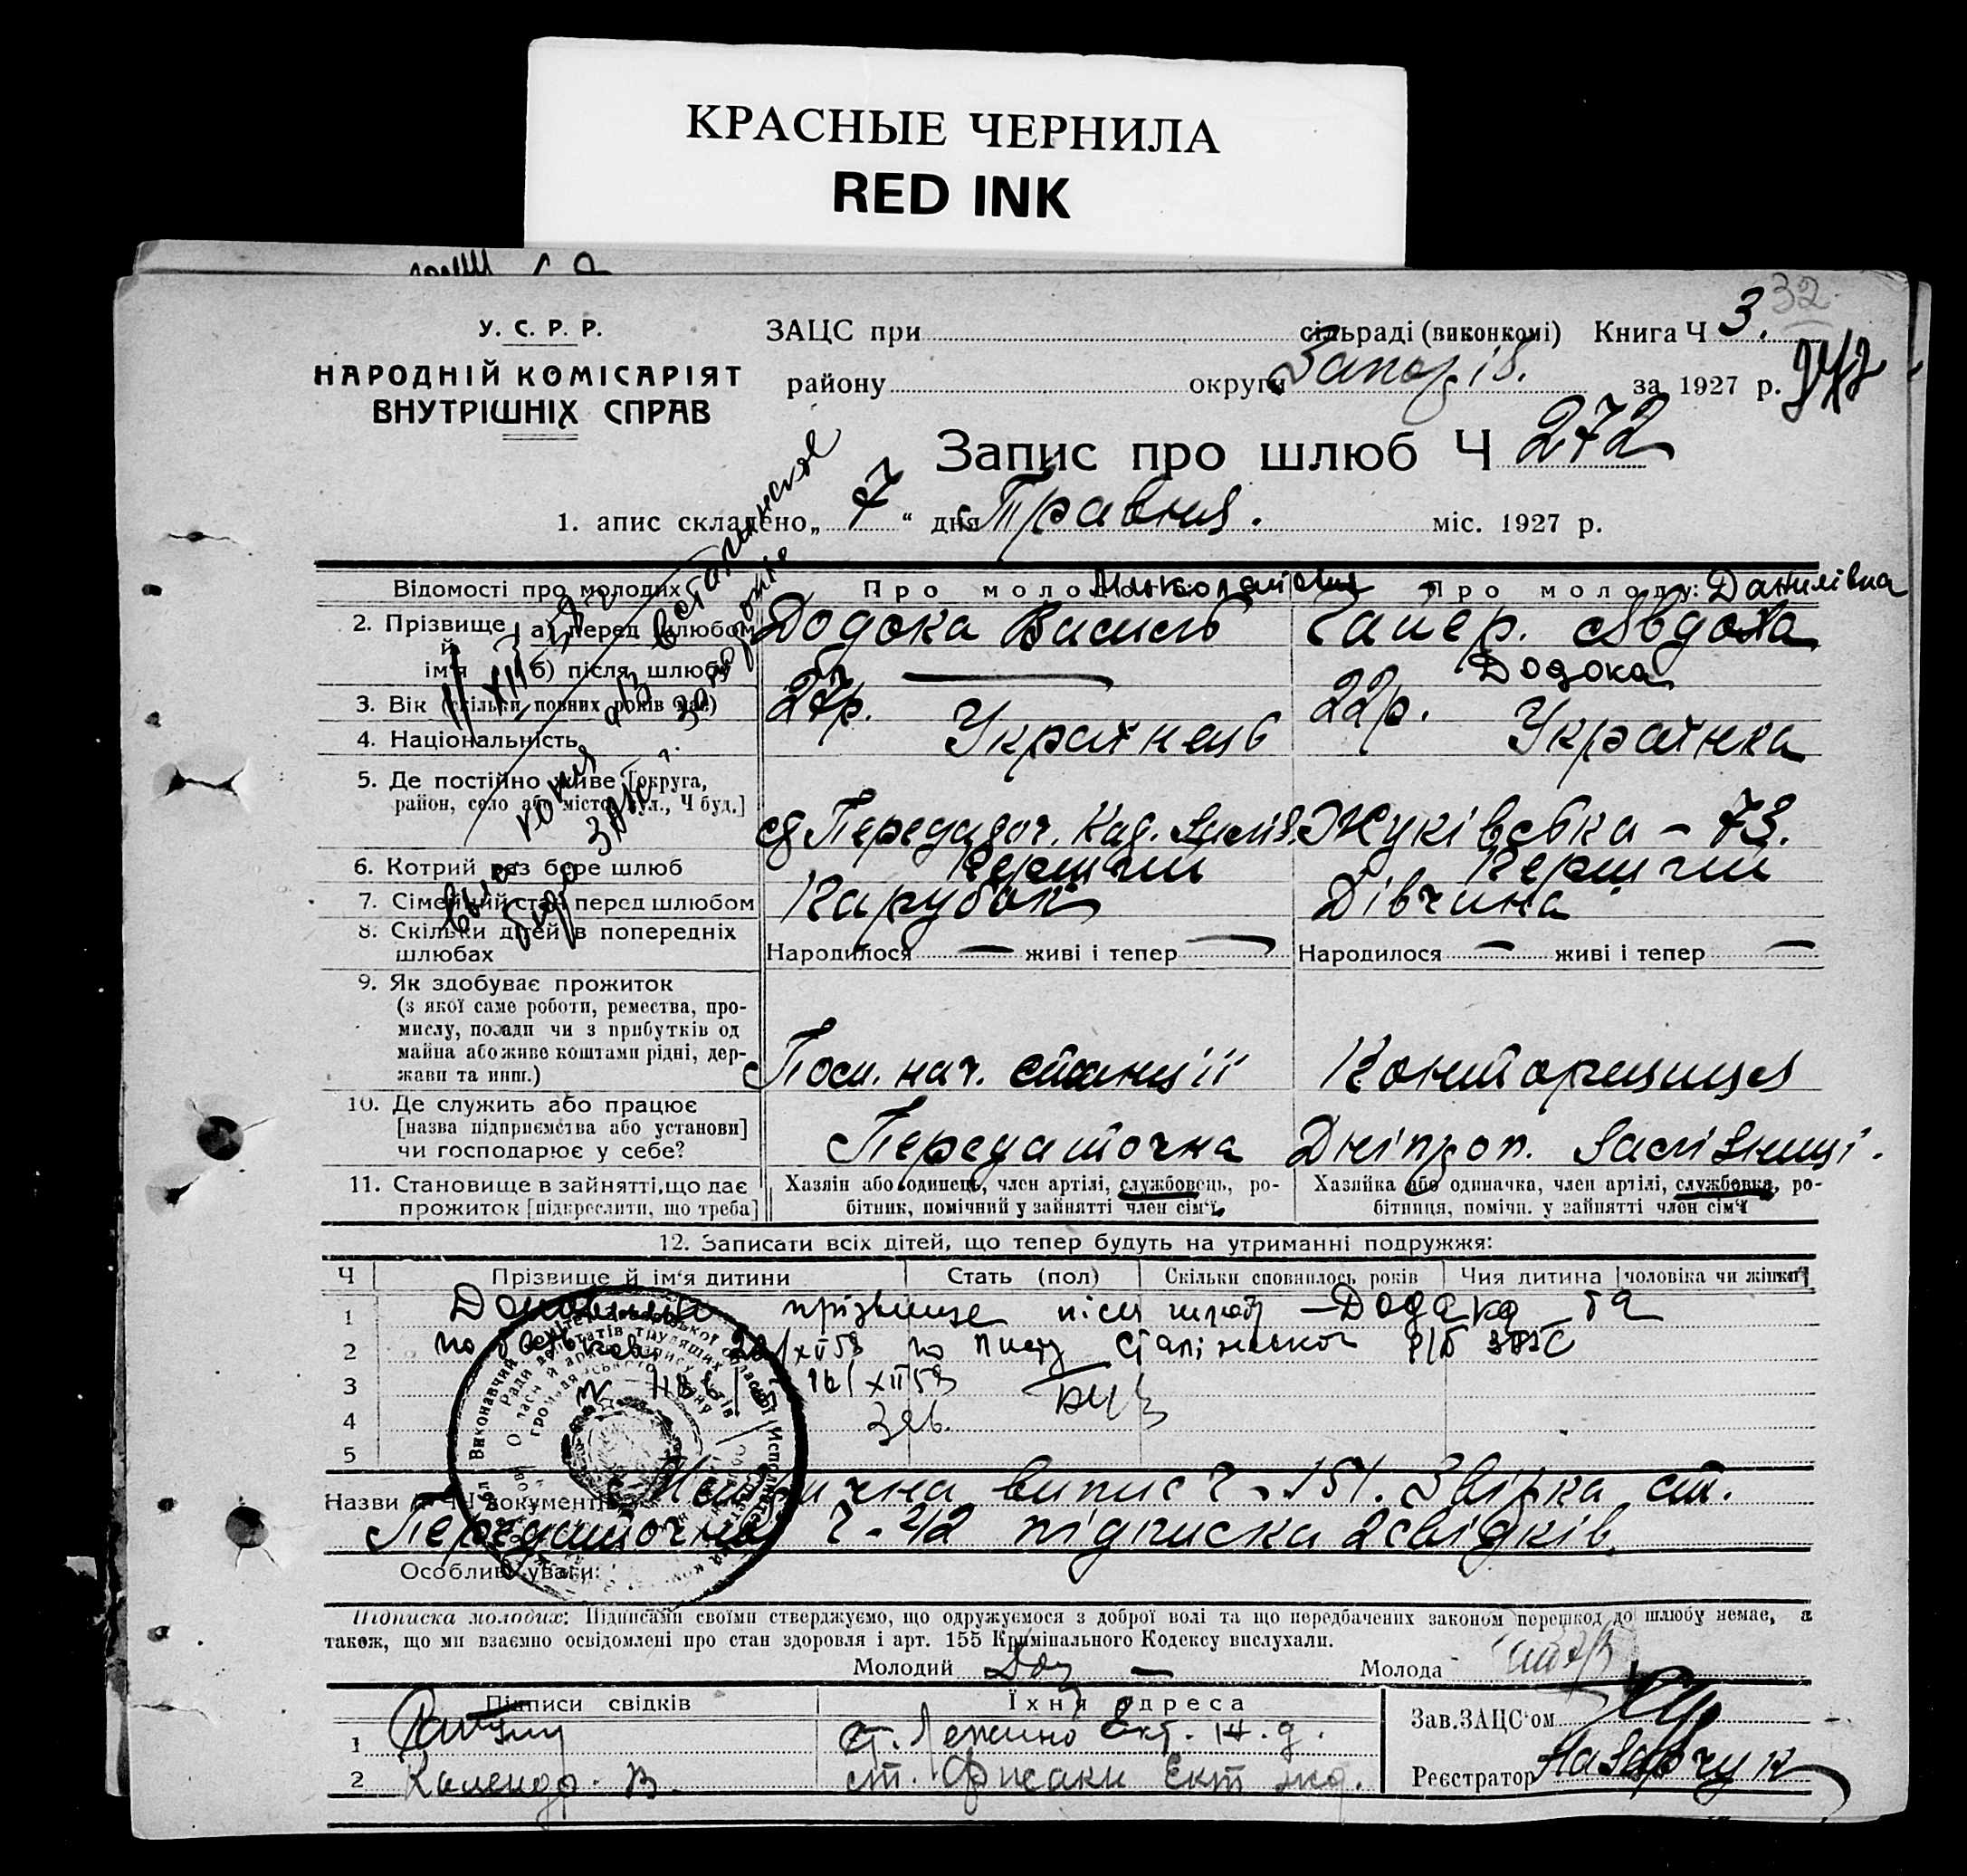 КРАСНЫЕ ЧЕРНИЛА
RED INK
32
У. С. Р. Р.
НАРОДНІЙ КОМІСАРІЯТ
ВНУТРІШНІХ СПРАВ
ЗАЦС при сільраді (виконкомі) Книга Ч 3.
району округи Запоріз. за 1927 р.
Запис про шлюб Ч 272
1. апис складено „ 27 “ дня Травня. міс. 1927 р.
Відомості про молодих Про молодого: Миколайович Про молоду: Данилівна
2. Прізвище й ім'я } а) перед шлюбом Додока Василь Гайер. Явдоха
б) після шлюбу — Додока
3. Вік (скільки повних років має) 27р. 22р.
4. Національність Українець Українка
5. Де постійно живе [округа, район, село або місто, вул., Ч буд.] Жуківська – 73.
6. Котрий раз бере шлюб Перший Перший
7. Сімейний стан перед шлюбом Парубок Дівчина
8. Скільки дітей в попередніх шлюбах Народилося — живі і тепер — Народилося — живі і тепер —
9. Як здобуває прожиток
(з якої саме роботи, ремества, про-
мислу, посади чи з прибутків од
майна або живе коштами рідні, дер-
жави та инш.) Пом. нач. станції Конторщиця
10. Де служить або працює
[назва підприємства або установи]
чи господарює у себе? Передаточна Дніпроп. Залізниці.
11. Становище в зайнятті, що дає
прожиток [підкреслити, що треба]
Хазяїн або одинець, член артілі, службовець, ро-
бітник, помічний у зайнятті член сім'ї
Хазяйка або одиначка, член артілі, службовка, ро-
бітниця, помічн. у зайнятті член сім'ї
12. Записати всіх дітей, що тепер будуть на утриманні подружжя:
Ч Прізвище й ім'я дитини Стать (пол) Скільки сповнилось років Чия дитина [чоловіка чи жінки]
1 прізвище після шлюбу – Додока та
2 по батькові по листу Сталінського ЗАГС
3 16/XII 59
4
5
Назви й ЧЧ документів: Метрична випис Ч – 151. Звірка ст.
Передаточна Ч – 42 підписка 2 свідків.
Особливі уваги:
Підписка молодих: Підписами своїми стверджуємо, що одружуємося з доброї волі та що передбачених законом перешкод до шлюбу немає, а
також, що ми взаємно освідомлені про стан здоровля і арт. 155 Кримінального Кодексу вислухали.
Молодий Молода
Підписи свідків Їхня адреса
Зав. ЗАЦС'ом
1 ст. Лежино Єкт. ж. д.
2 ст. Єкт жд.
Реєстратор Назарчук